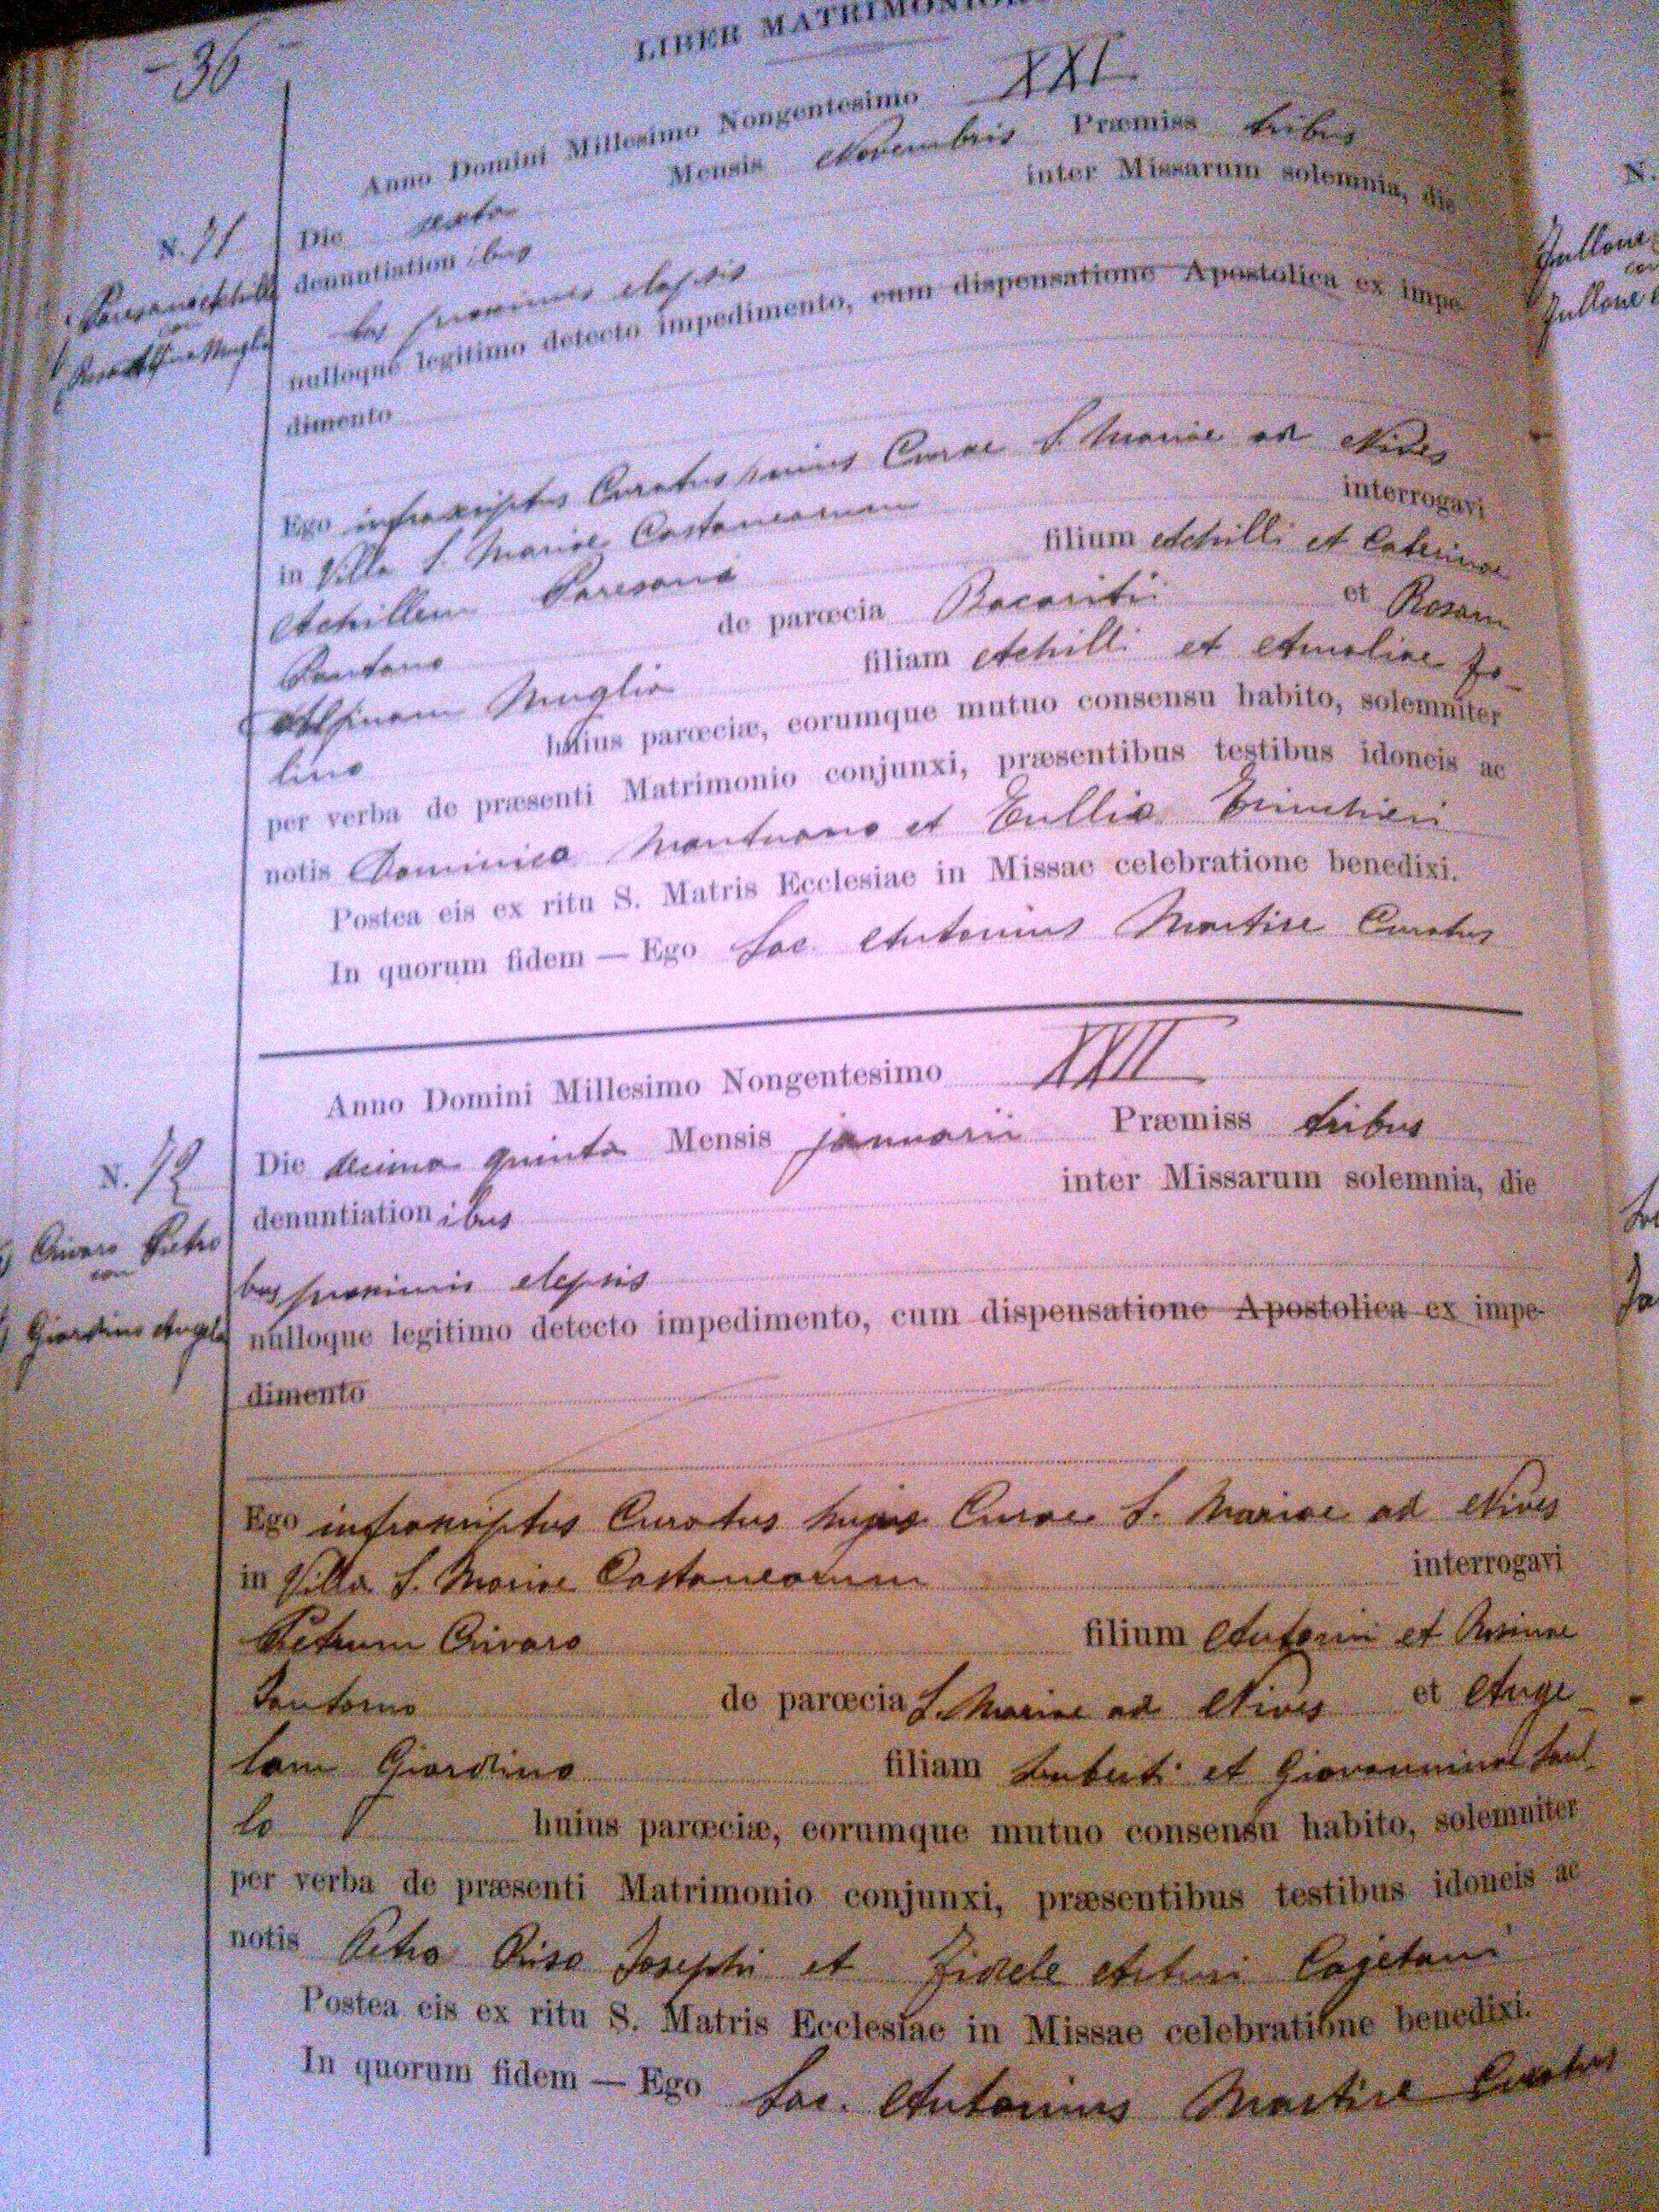 - 36 -
LIBER MATRIMONIOR
Anno Domini Millesimo Nongentesimo XXI
Die sexta Mensis Novembris Præmiss tribus
N. 71
denuntiationibus inter Missarum solemnia, die
bus proximis elapsis
nulloque legitimo detecto impedimento, cum dispensatione Apostolica ex impe
dimento
Ego infrascriptus Curatus hujus Curae S. Mariae ad Nives
in Villa S. Mariae Castanearum interrogavi
Achillem filium Achilli et Caterinae
Pantano de parœcia Bacaritii et Rosam
Alfinam Muglia filiam Achilli et Amaliae Fo-
lino huius parœciæ, eorumque mutuo consensu habito, solemniter
per verba de præsenti Matrimonio conjunxi, præsentibus testibus idoneis ac
notis Dominico Mantuano et Tullio
Postea eis ex ritu S. Matris Ecclesiae in Missae celebratione benedixi.
In quorum fidem — Ego Sac. Antonius Martire Curatus
Anno Domini Millesimo Nongentesimo XXII
Die decima quinta Mensis januarii Præmiss tribus
N. 72
denuntiationibus inter Missarum solemnia, die
Crivaro Pietro
con
bus proximis elapsis
Giardino Angela
nulloque legitimo detecto impedimento, cum dispensatione Apostolica ex impe-
dimento
Ego infrascriptus Curatus hujus Curae S. Mariae ad Nives
in Villa S. Mariae Castanearum interrogavi
Petrum Crivaro filium Antonii et Rosinae
de parœcia S. Mariae ad Nives et Ange-
lam Giardino filiam et Giovanninae
lo huius parœciæ, eorumque mutuo consensu habito, solemniter
per verba de præsenti Matrimonio conjunxi, præsentibus testibus idoneis ac
notis Petro Josephi et Fidele Arturi Cajetani
Postea eis ex ritu S. Matris Ecclesiae in Missae celebratione benedixi.
In quorum fidem — Ego Sac. Antonius Martire Curatus